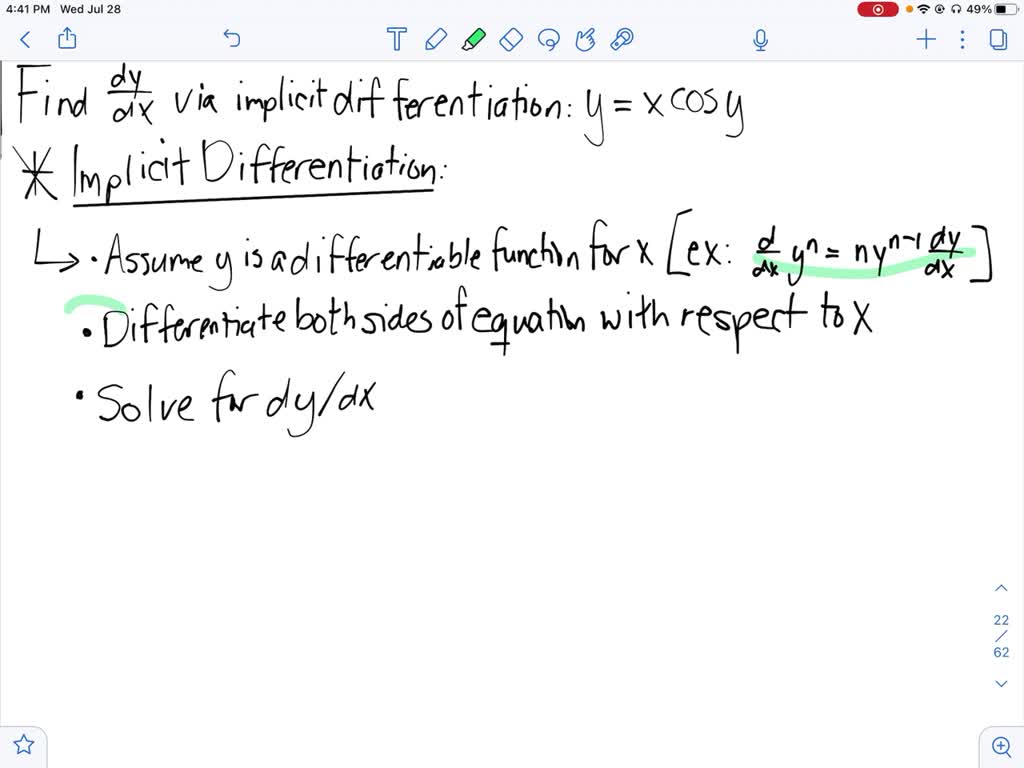 4:41 PM Wed Jul 28 49%
T
Find dy/dx via implicit differentiation: y = x cos y
* Implicit Differentiation:
↳ • Assume y is a differentiable function for x [ex: d/dx yⁿ = nyⁿ⁻¹ dy/dx]
• Differentiate both sides of equation with respect to x
• Solve for dy/dx
22
/
62